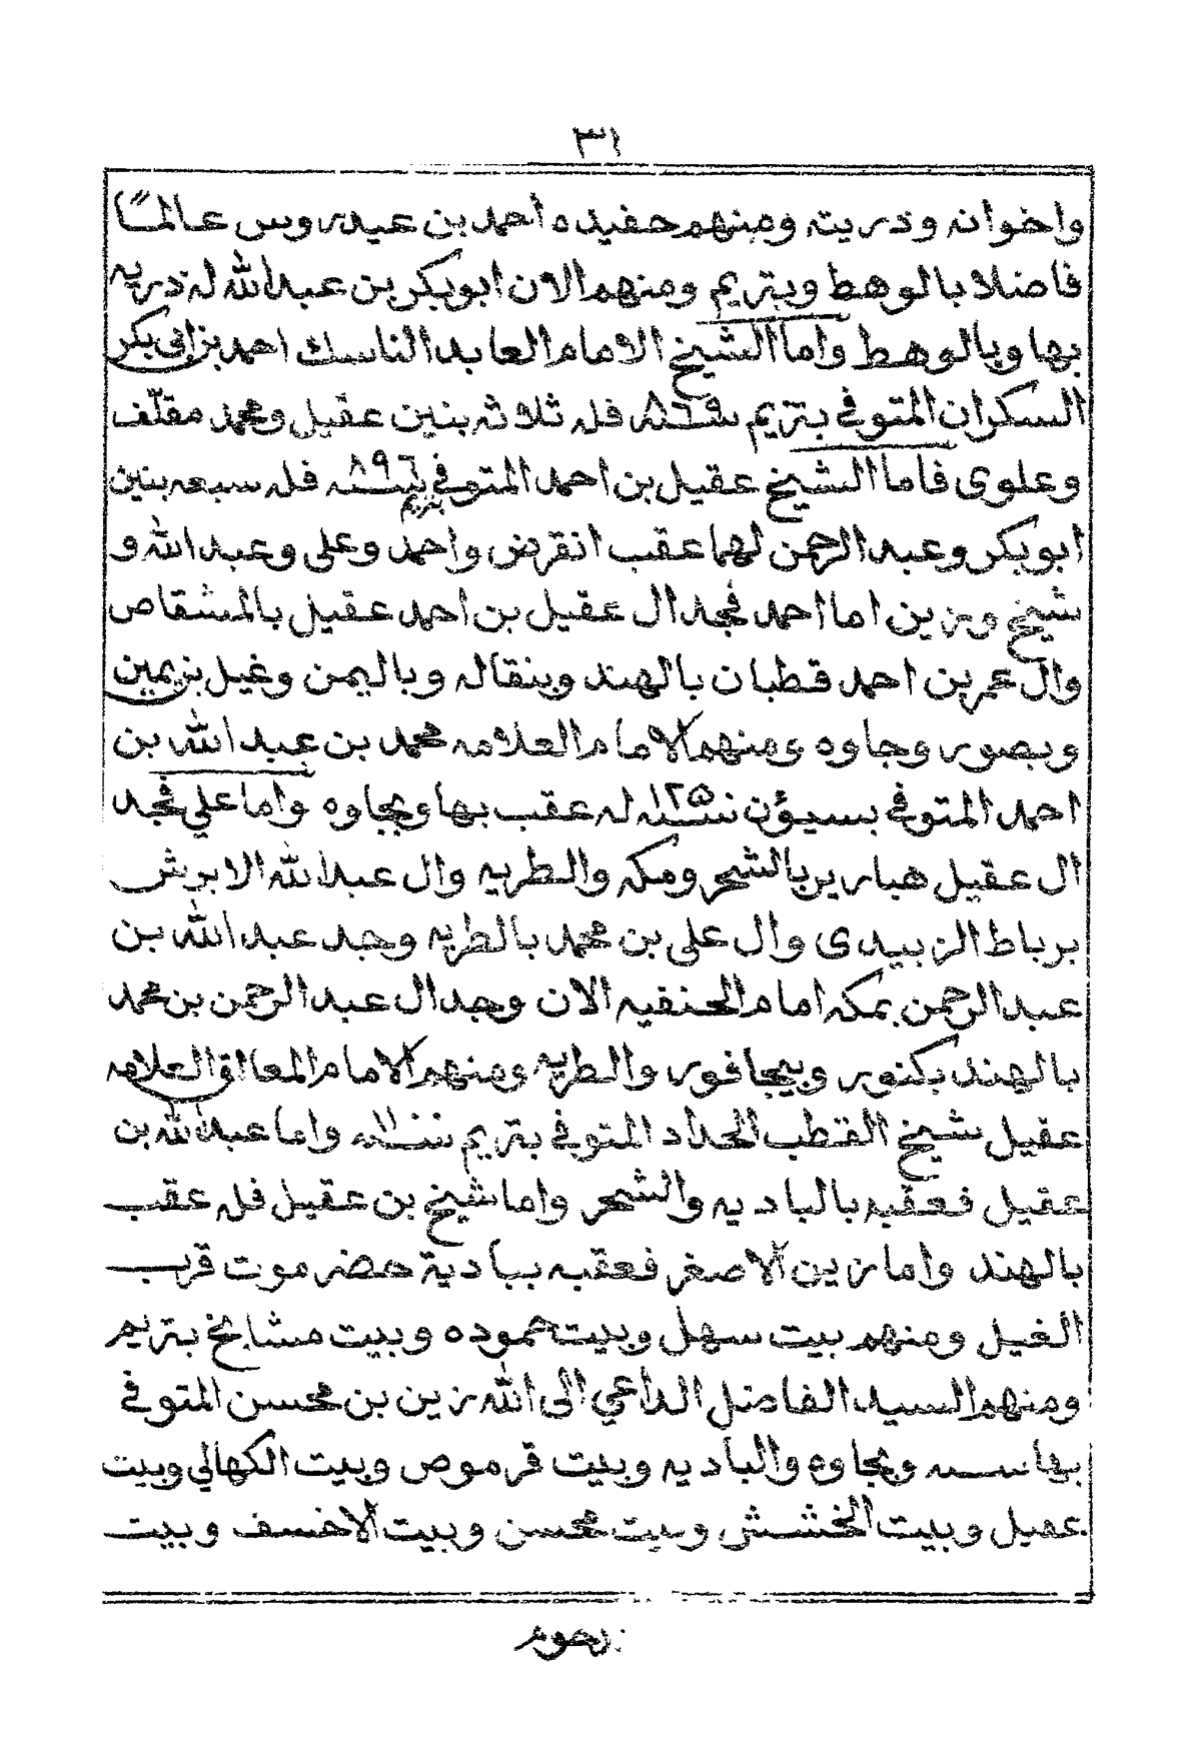 ٣١
واخوانه وذريته ومنهم حفيده احمد بن عيدروس عالمًا
فاضلا بالوهط وبتريم ومنهم الان ابوبكر بن عبدالله له ذريه
بها وبالوهط واما الشيخ الامام العابد الناسك احمد بن ابي بكر
السكران المتوفي بتريم سنه ٨٦٩ فله ثلاثه بنين عقيل ومحمد مقلف
وعلوى فاما الشيخ عقيل بن احمد المتوفي بتريم سنه ٨٩٦ فله سبعه بنين
ابوبكر وعبد الرحمن لهما عقب انقرض واحمد وعلى وعبد الله و
شيخ وزين اما احمد فجد ال عقيل بن احمد عقيل بالمشقاص
وال عمر بن احمد قطبان بالهند وبنقاله وباليمن وغيل بن يمين
وبصور وجاوه ومنهم الامام العلامه محمد بن عبد الله بن
احمد المتوفي بسيؤن سنه ١٢٥ له عقب بها وبجاوه واما علي فجد
ال عقيل هبارين بالشحر ومكه والطريه وال عبد الله الابريش
برباط الزبيدى وال على بن محمد بالطريه وجد عبد الله بن
عبد الرحمن بمكه امام الحنفيه الان وجد ال عبد الرحمن بن محمد
بالهند بكنور وبيجافور والطريه ومنهم الامام المعالق العلامه
عقيل شيخ القطب الحداد المتوفي بتريم سنه ١١ واما عبدالله بن
عقيل فعقبه بالباديه والشحر واما شيخ بن عقيل فله عقب
بالهند واما زين الاصغر فعقبه ببادية حضرموت قرب
الغيل ومنهم بيت سهل وبيت حموده وبيت مشايخ بتريم
ومنهم السيد الفاضل الداعي الى الله زين بن محسن المتوفي
بها سنه وبجاوه والباديه وبيت قرموص وبيت الكهالي وبيت
عقيل وبيت الخشش وبيت محسن وبيت الاخسف وبيت